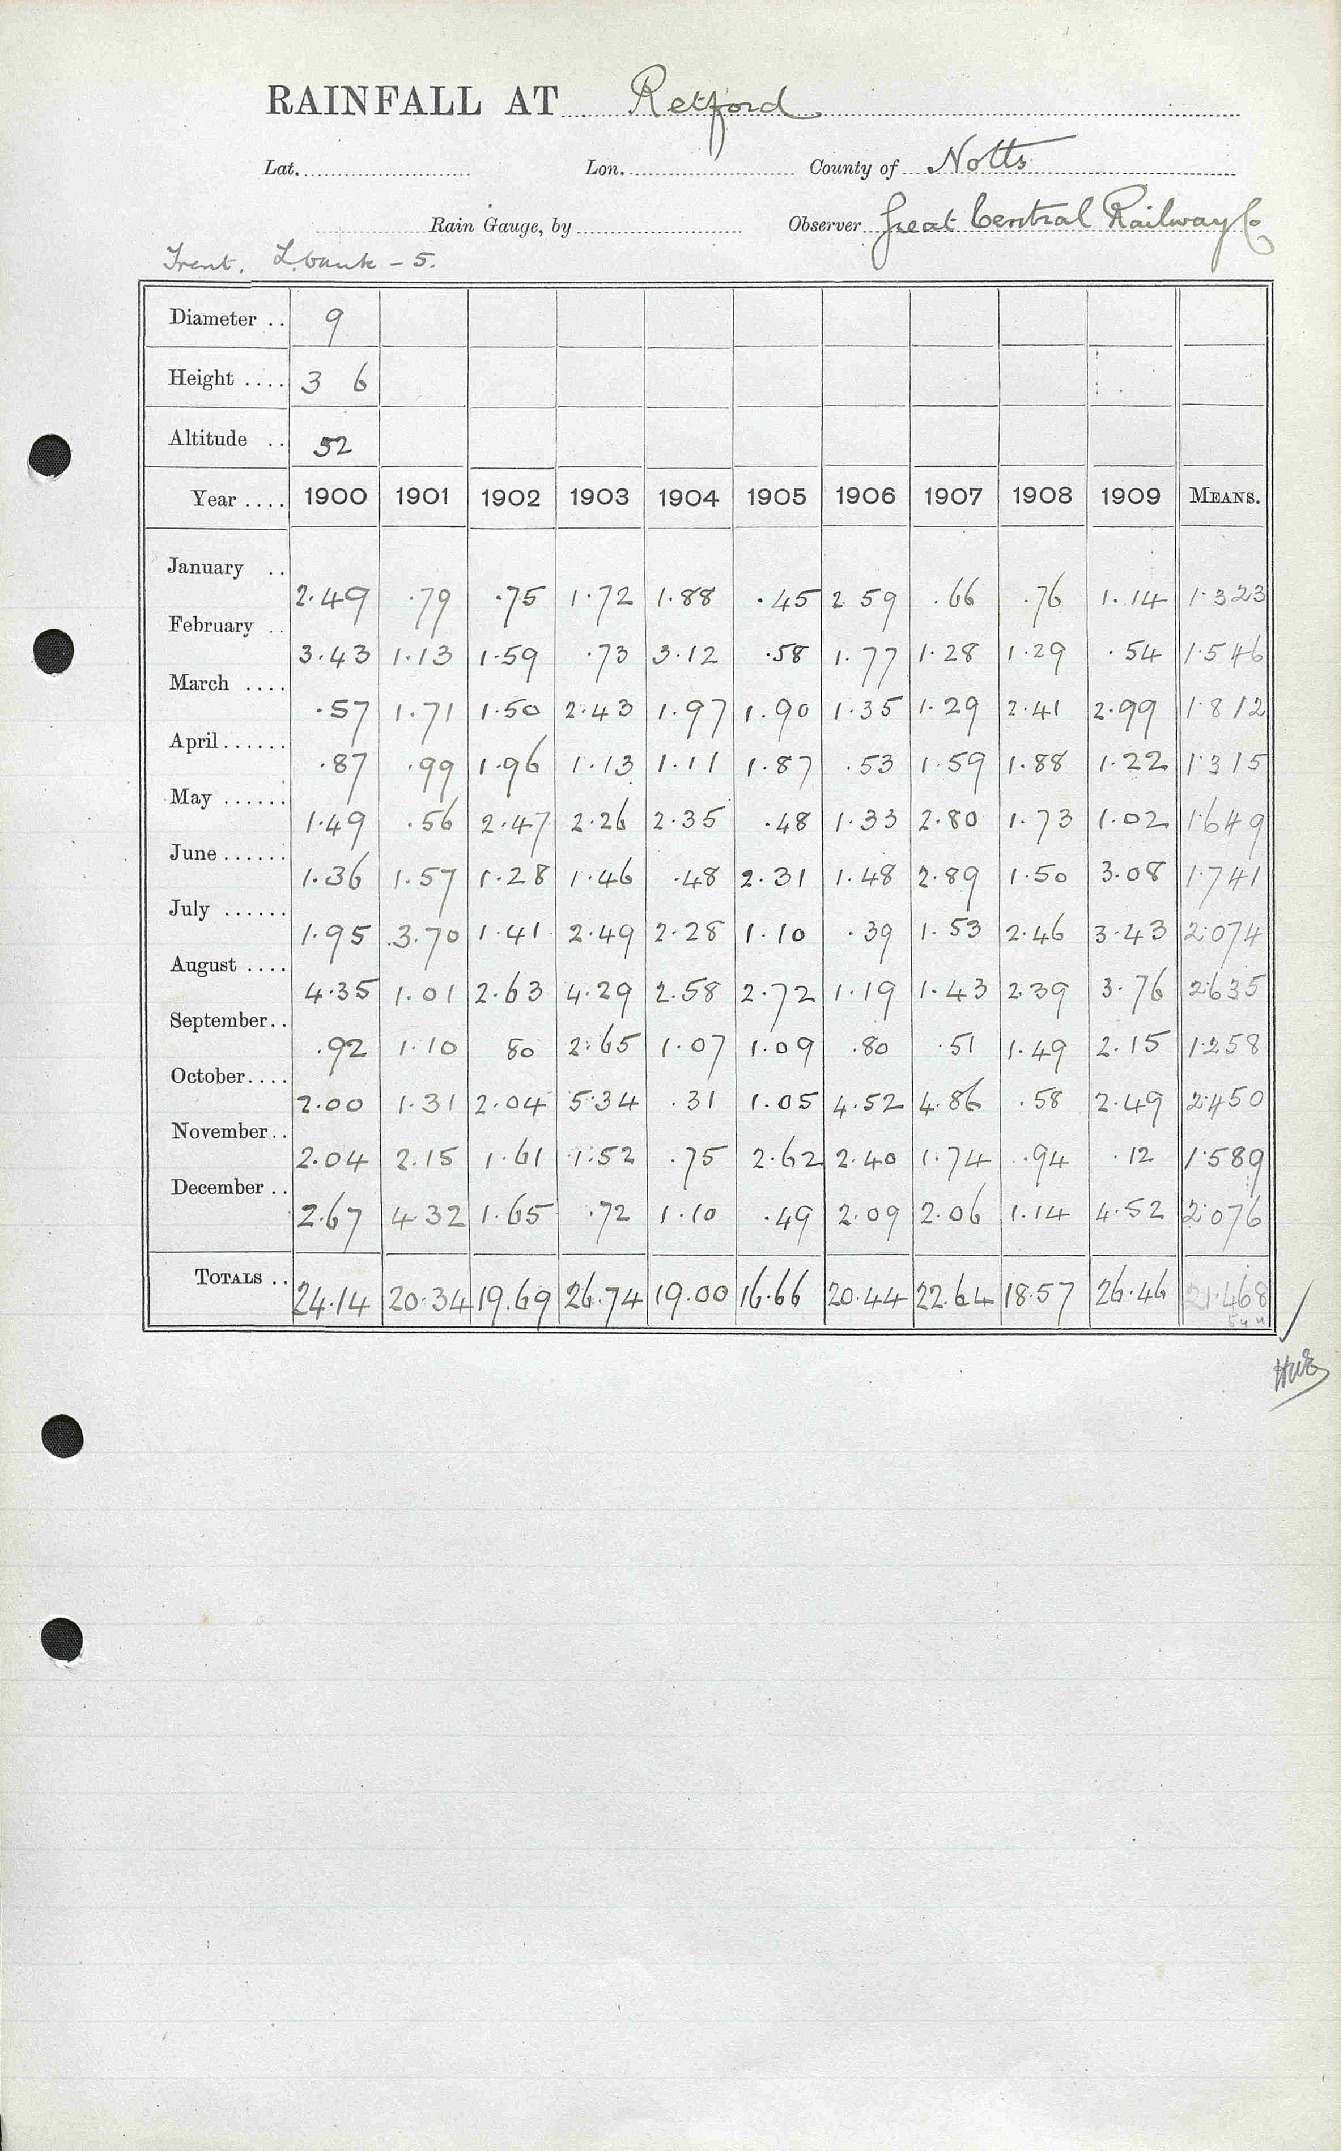 RAINFALL AT Retford
Lat. Lon. County of Notts
Rain Gauge, by Observer Great Central Railway Co
Trent. L. bank - 5.
Diameter .. 9
Height .... 3 6
Altitude .. 52
Year .... 1900 1901 1902 1903 1904 1905 1906 1907 1908 1909 MEANS.
January .. 2.49 .79 .75 1.72 1.88 .45 2 59 .66 .76 1.14 1.323
February .. 3.43 1.13 1.59 .73 3.12 .58 1.77 1.28 1.29 .54 1.546
March .... .57 1.71 1.50 2.43 1.97 1.90 1.35 1.29 2.41 2.99 1.812
April...... .87 .99 1.96 1.13 1.11 1.87 .53 1.59 1.88 1.22 1.315
May ...... 1.49 .56 2.47 2.26 2.35 .48 1.33 2.80 1.73 1.02 1.649
June ...... 1.36 1.57 1.28 1.46 .48 2.31 1.48 2.89 1.50 3.08 1.741
July ...... 1.95 3.70 1.41 2.49 2.28 1.10 .39 1.53 2.46 3.43 2.074
August .... 4.35 1.01 2.63 4.29 2.58 2.72 1.19 1.43 2.39 3.76 2.635
September.. .92 1.10 80 2.65 1.07 1.09 .80 .51 1.49 2.15 1.258
October.... 2.00 1.31 2.04 5.34 .31 1.05 4.52 4.86 .58 2.49 2.450
November.. 2.04 2.15 1.61 1.52 .75 2.62 2.40 1.74 .94 .12 1.589
December .. 2.67 4.32 1.65 .72 1.10 .49 2.09 2.06 1.14 4.52 2.076
TOTALS .. 24.14 20.34 19.69 26.74 19.00 16.66 20.44 22.64 18.57 26.46 21.468